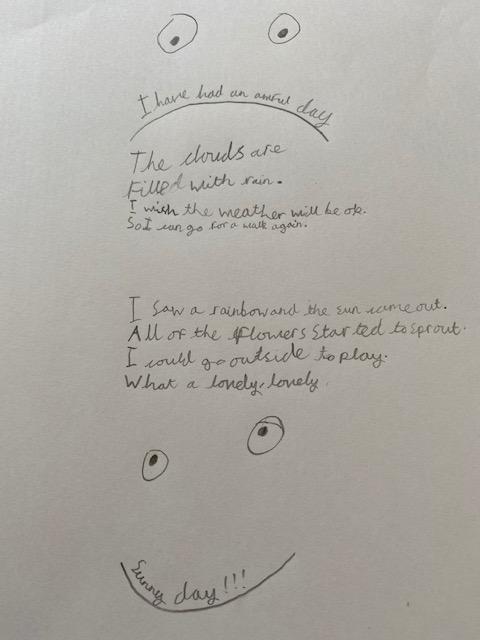 I have had an awful day
The clouds are
Filled with rain.
I wish the weather will be ok.
So I can go for a walk again.
I saw a rainbow and the sun came out.
All of the flowers started to sprout.
I could go outside to play.
What a lonely, lonely
Sunny day!!!